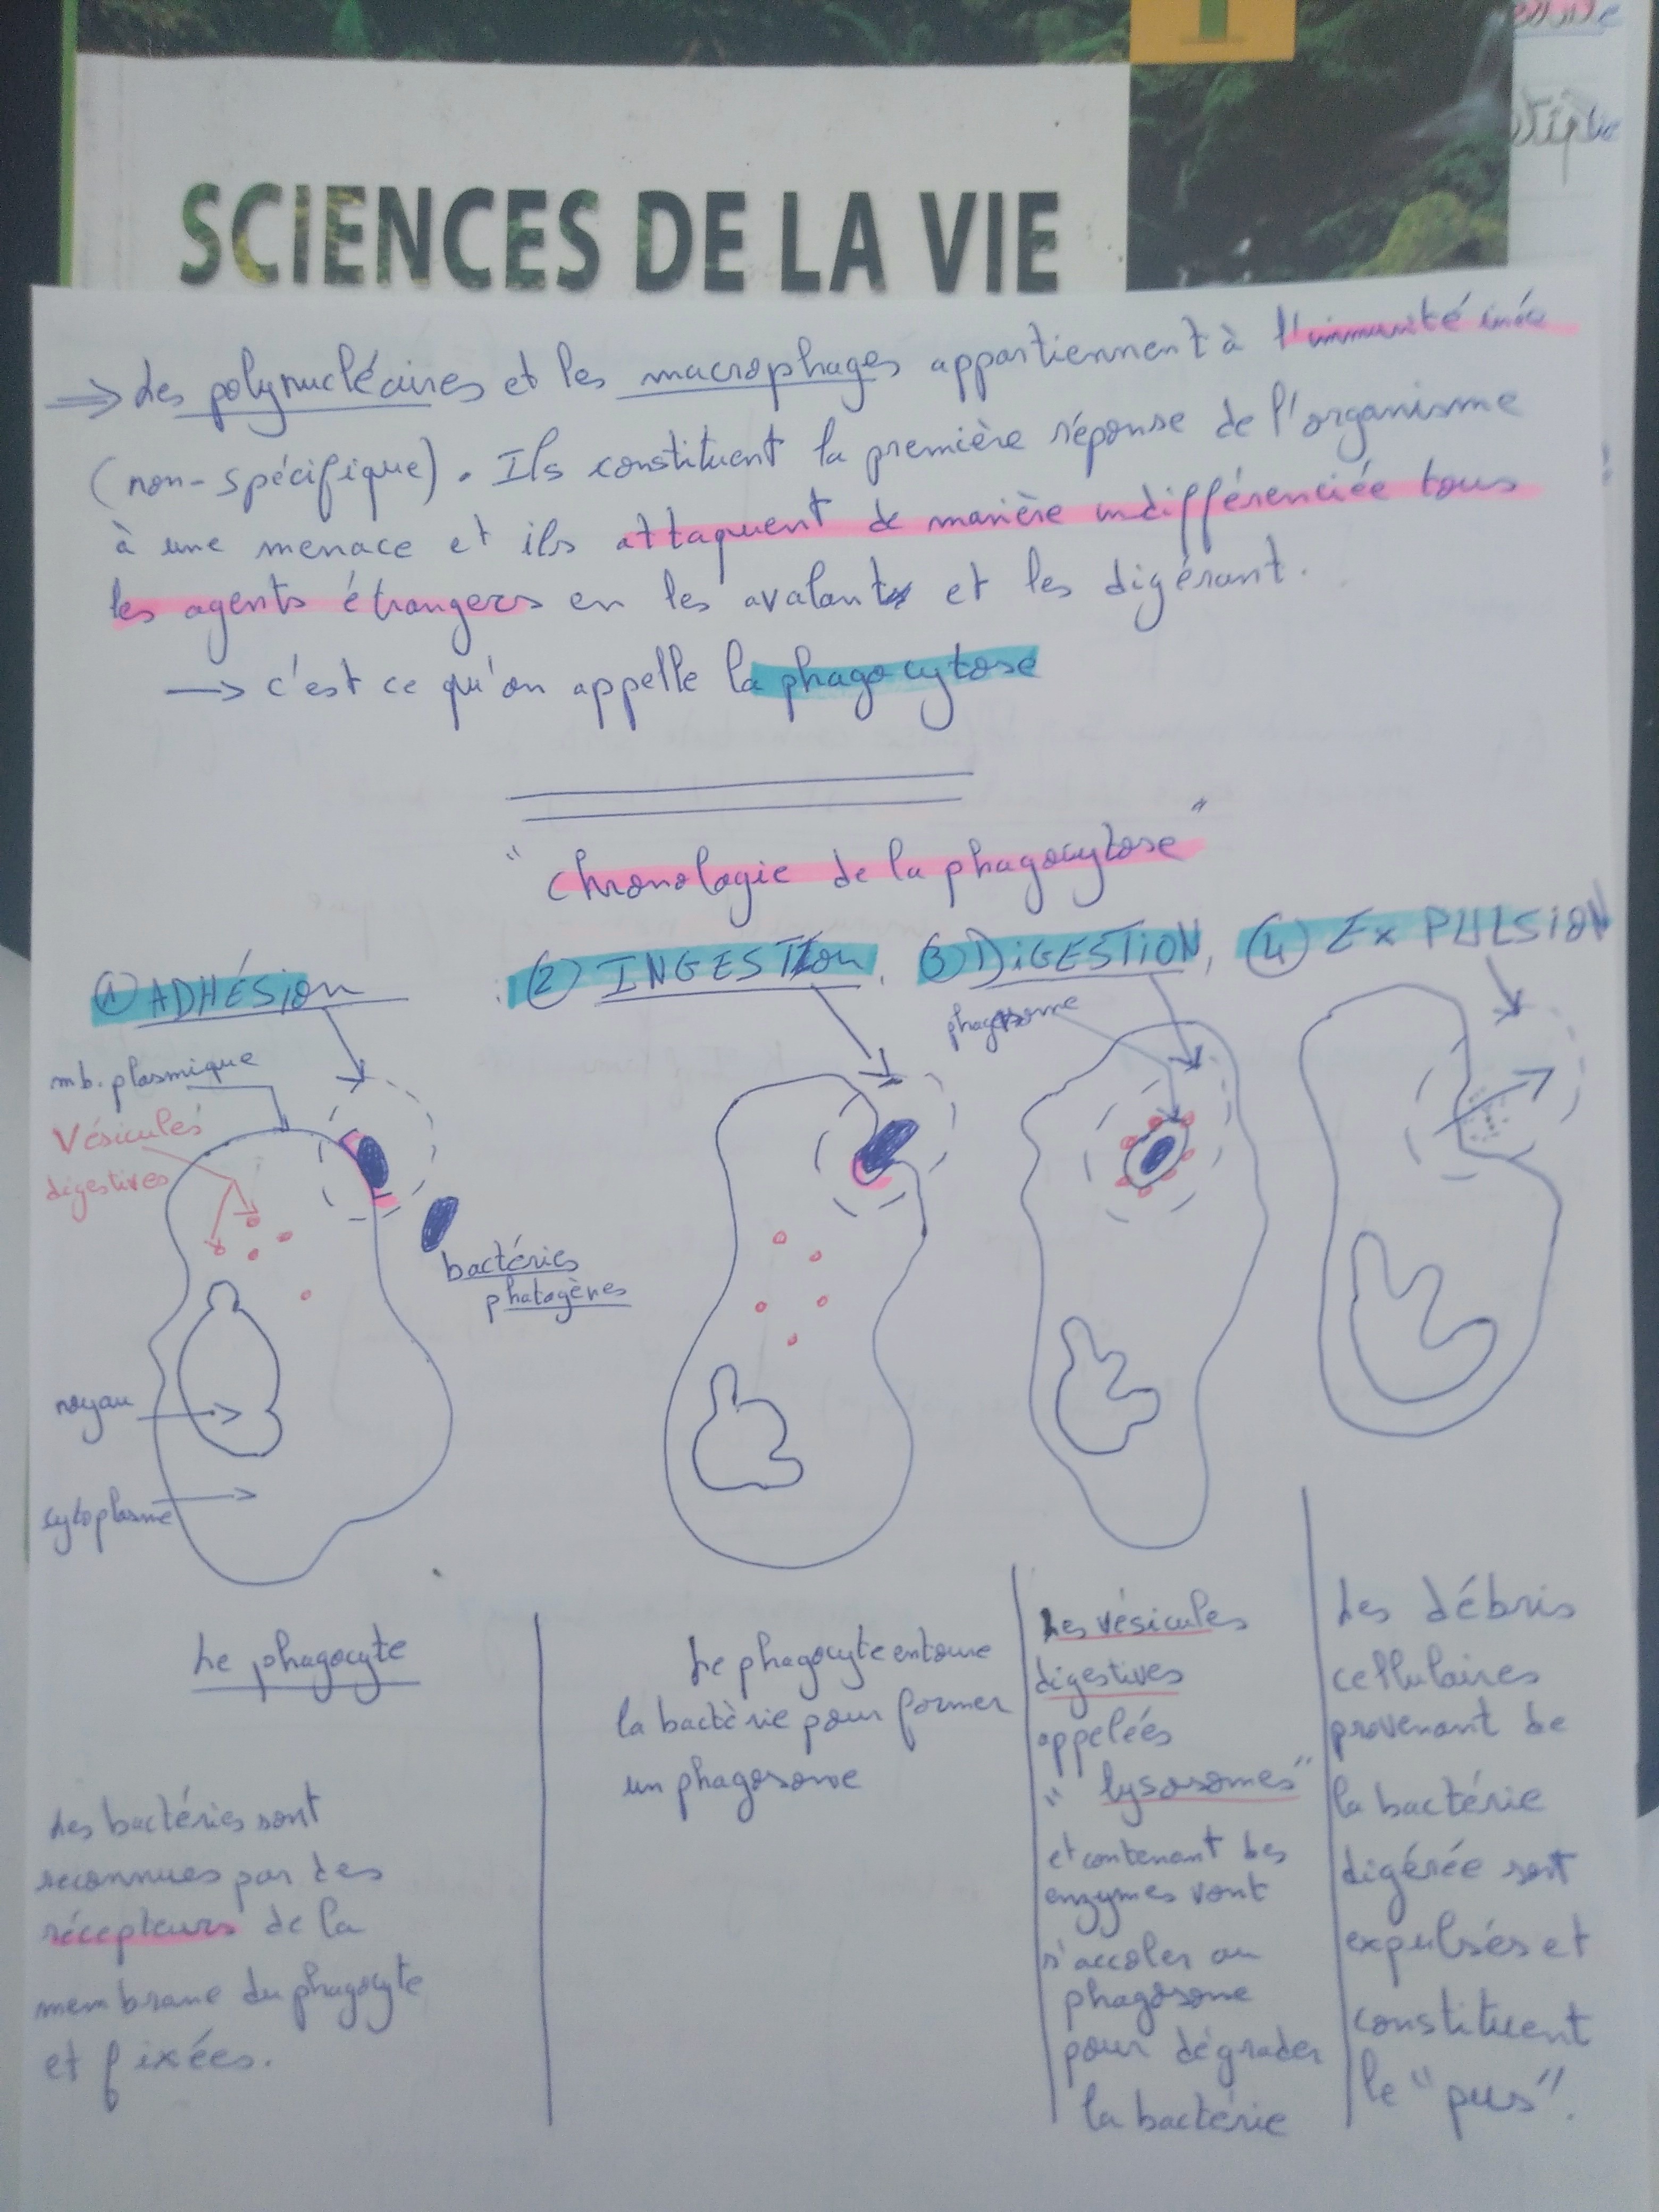 SCIENCES DE LA VIE
⇒ Les polynucléaires et les macrophages appartiennent à l'immunité innée
(non-spécifique). Ils constituent la première réponse de l'organisme
à une menace et ils attaquent de manière indifférenciée tous
les agents étrangers en les avalant et les digérant.
→ c'est ce qu'on appelle la phagocytose
"chronologie de la phagocytose"
① ADHÉSion
② INGESTIon,
③ DiGESTiON,
④ ExPULSiON
phagosome
mb. plasmique
Vésicules
digestives
bactéries
phatogènes
noyau
cytoplasme
Le phagocyte
Les bactéries sont
reconnues par des
récepteurs de la
membrane du phagocyte
et fixées.
Le phagocyte entoure
la bactèrie pour former
un phagosome
Les vésicules
digestives
appelées
"lysosomes"
et contenant des
enzymes vont
s'accoler au
phagosome
pour dégrader
la bactérie
Les débris
cellulaires
provenant de
la bactérie
digérée sont
expulsés et
constituent
le "pus".